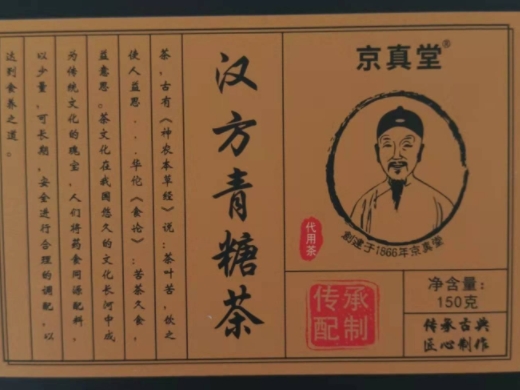 茶，古有《神农本草经》说：茶叶苦，饮之
使人益思...华佗《食论》：苦茶久食，
益意思。茶文化在我国悠久的文化长河中成
为传统文化的瑰宝，人们将药食同源配料，
以少量，可长期，安全进行合理的调配，以
达到食养之道。
汉方青糖茶
京真堂®
代用茶
創建于1866年京真堂
传承
配制
净含量：
150克
传承古典
匠心制作